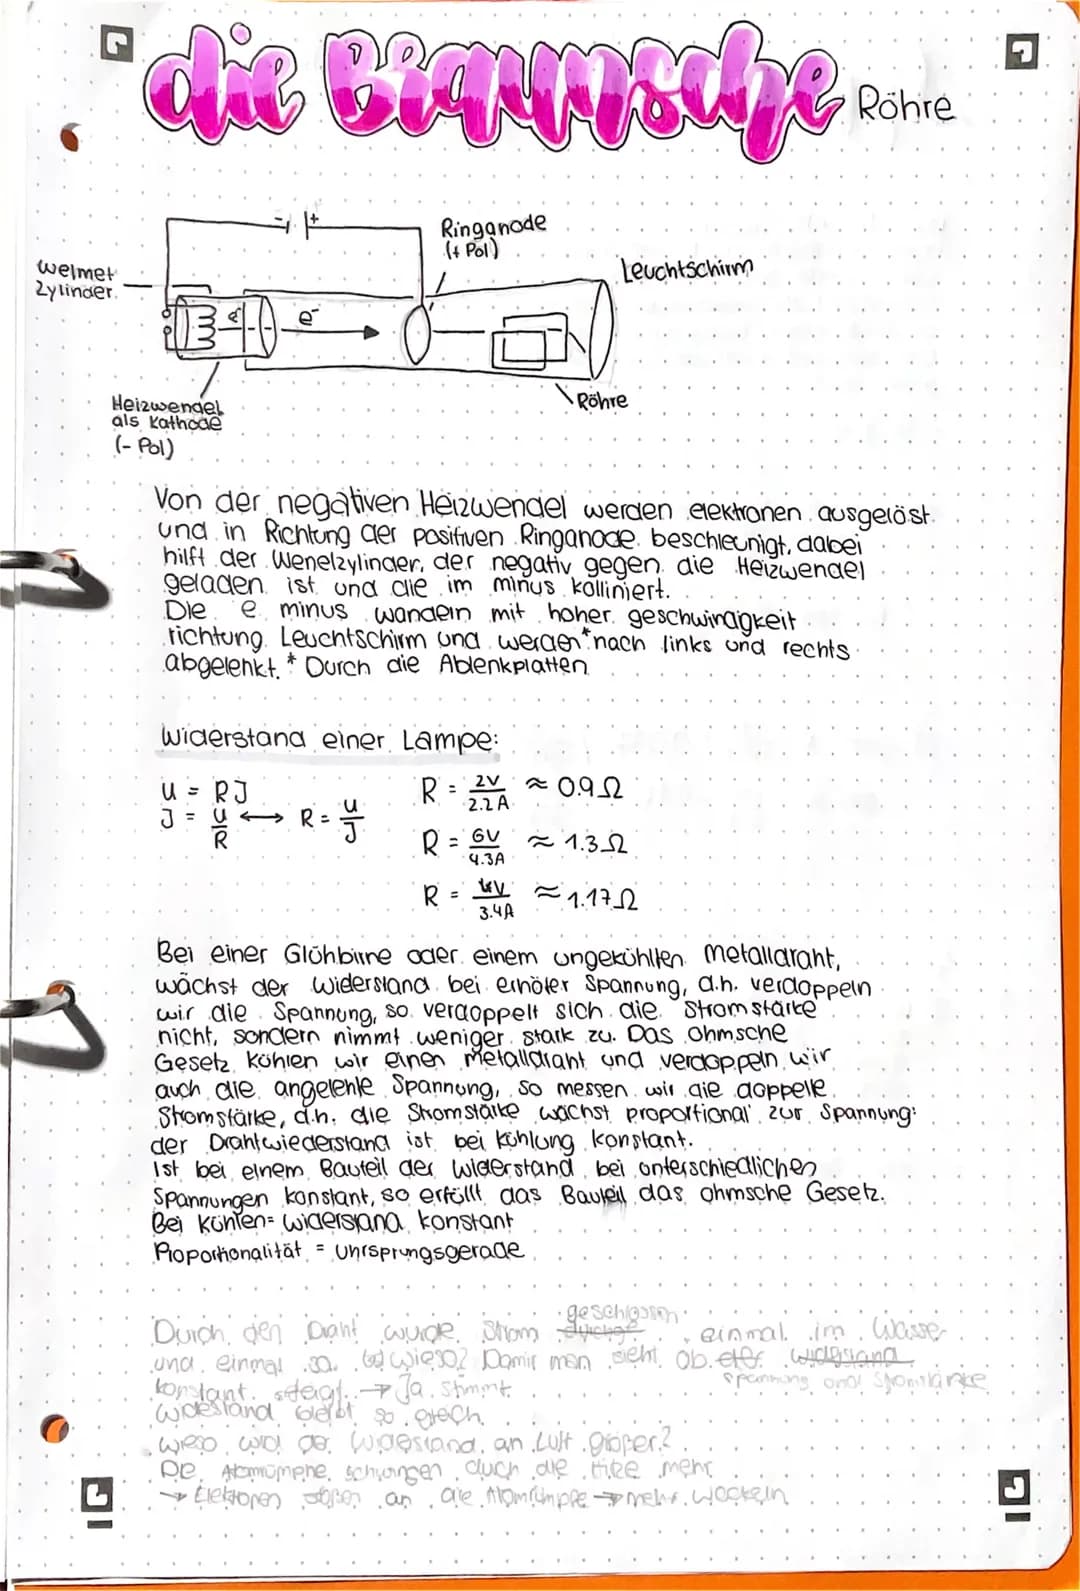 die Braunsche Röhre
Ringanode
(+ Pol)
Leuchtschirm
welmet
Zylinder
e⁻
e⁻
Röhre
Heizwendel
als Kathode
(- Pol)
Von der negativen Heizwendel werden elektronen ausgelöst
und in Richtung der positiven Ringanode beschleunigt, dabei
hilft der Wenelzylinder, der negativ gegen die Heizwendel
geladen ist und die im minus kolliniert.
Die e minus wandeln mit hoher geschwindigkeit
richtung Leuchtschirm und werden* nach links und rechts
abgelenkt. * Durch die Ablenkplatten
Widerstand einer Lampe:
U = RJ
J = U/R ⟷ R = U/J
R = 2V/2.2A ≈ 0.9Ω
R = 6V/4.3A ≈ 1.3Ω
R = 4V/3.4A ≈ 1.17Ω
Bei einer Glühbirne oder einem ungekühlten Metalldraht,
wächst der Widerstand bei erhöter Spannung, d.h. verdoppeln
wir die Spannung, so verdoppelt sich die Stromstärke
nicht, sondern nimmt weniger stark zu. Das Ohmsche
Gesetz Kühlen wir einen Metalldraht und verdoppeln wir
auch die angelehle Spannung, so messen wir die doppelle
Stromstärke, d.h. die Stromstärke wächst proportional zur Spannung:
der Drahtwiederstand ist bei Kühlung konstant.
Ist bei einem Bauteil der Widerstand bei unterschiedlichen
Spannungen konstant, so erfüllt das Bauteil das ohmsche Gesetz.
Bei Kühlen= widerstand konstant
Proportionalität = Uhrsprungsgerade
geschlossen
Durch den Draht wurde Strom einmal im Wasser
und einmal so. Wieso? Damit man sieht ob
Spannung und Stromstärke
konstant steigt. → Ja stimmt
Widestand bleibt so gleich.
Wieso wird der Widestand an Luft größer?
Die Atomrümpfe schwingen duch die Hitze mehr
→ Elektronen stoßen an die Atomrümpfe → mehr wackeln